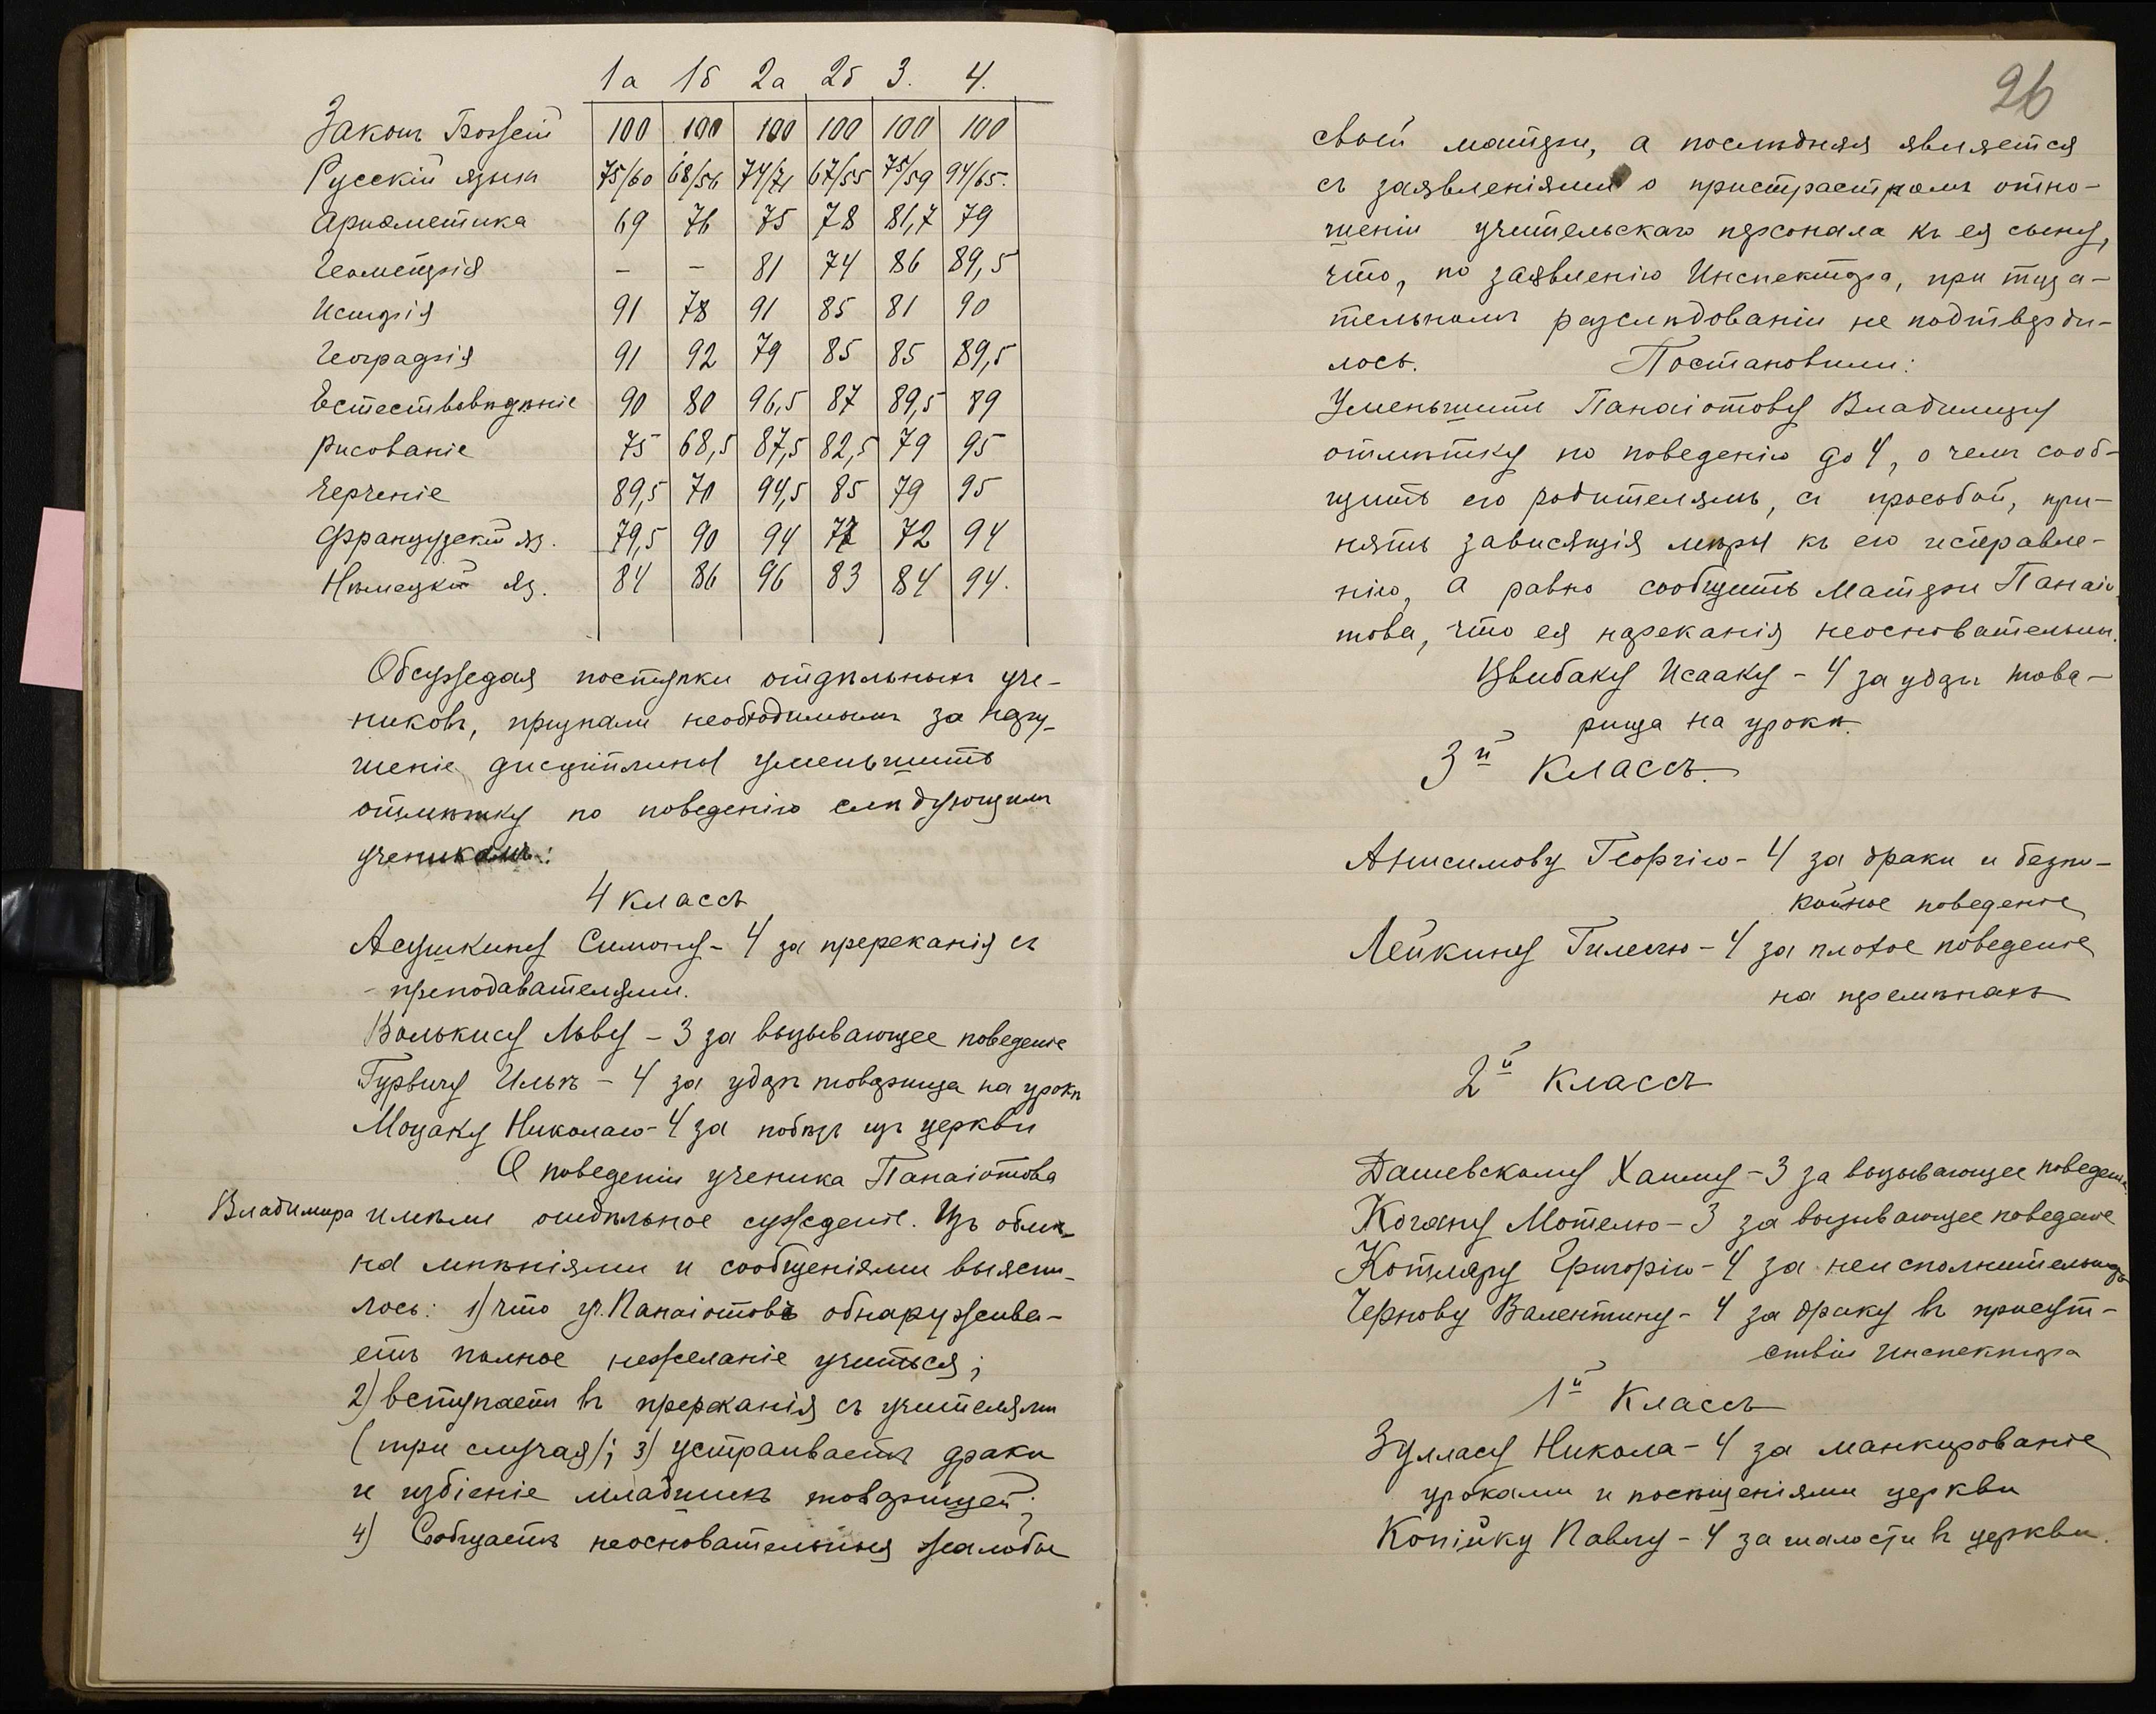 1а 1б 2а 2б 3. 4.
Законъ Божій 100 100 100 100 100 100
Русскій языкъ 75/60 68/56 74/71 67/55 75/59 94/65.
Ариѳметика 69 76 75 78 81,7 79
Геометрія - - 81 74 86 89,5
Исторія 91 78 91 85 81 90
Географія 91 92 79 85 85 89,5
Естествовѣдѣніе 90 80 96,5 87 89,5 89
Рисованіе 75 68,5 87,5 82,5 79 95
Черченіе 89,5 70 94,5 85 79 95
Французскій яз. 79,5 90 94 72 94
Нѣмецкій яз. 84 86 96 83 84 94.
Обсуждая поступки отдѣльныхъ уче-
никовъ, признали необходимымъ за нару-
шеніе дисциплины уменьшить
отмѣтку по поведенію слѣдующимъ
ученикамъ:
4 классъ
Симону - 4 за пререканія съ
преподавателями.
Волькису Льву - 3 за вызывающее поведеніе
Гурвичу Ильѣ - 4 за ударъ товарища на урокѣ
Моцаку Николаю - 4 за побѣгъ изъ церкви
О поведеніи ученика Панаіотова
Владимира имѣли отдѣльное сужденіе. Изъ обмѣ-
на мнѣніями и сообщеніями выясни-
лось: 1) что уч. Панаіотовъ обнаружива-
етъ полное нежеланіе учиться;
2) вступаетъ въ пререканія съ учителями
(три случая); 3) устраиваетъ драки
и избіеніе младшихъ товарищей;
4) Сообщаетъ неосновательныя жалобы
26
своей матери, а послѣдняя является
съ заявленіями о пристрастномъ отно-
шеніи учительскаго персонала къ ея сыну,
что, по заявленію Инспектора, при тща-
тельномъ разслѣдованіи не подтверди-
лось. Постановили:
Уменьшить Панаіотову Владимиру
отмѣтку по поведенію до 4, о чемъ сооб-
щить его родителямъ, съ просьбой, при-
нять зависящія мѣры къ его исправле-
нію, а равно сообщить матери Панаіо-
това, что ея нареканія неосновательны.
Цвибаку Исааку - 4 за ударъ това-
рища на урокѣ.
3й классъ.
Анисимову Георгію - 4 за драки и безпо-
койное поведеніе
Лейкину Гилелю - 4 за плохое поведеніе
на перемѣнахъ
2й классъ
Дашевскому Хаиму - 3 за вызывающее поведеніе.
Когану Мотелю - 3 за вызывающее поведеніе
Котляру Григорію - 4 за неисполнительность
Чернову Валентину - 4 за драку въ присут-
ствіи Инспектора
1й классъ
Зулласу Никола - 4 за манкированіе
уроками и посѣщеніями церкви
Копійку Павлу - 4 за шалости въ церкви.